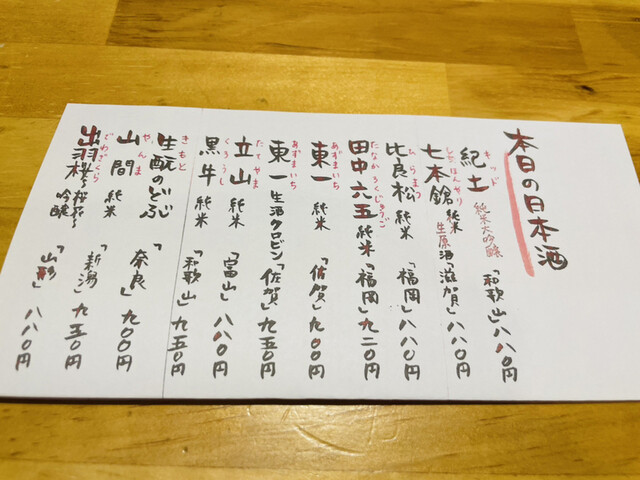 本日の日本酒
キッド
紀土 純米大吟醸 「和歌山」八八〇円
しちほんやり
七本鎗 純米生原酒「滋賀」八八〇円
ひらまつ
比良松 純米「福岡」八八〇円
たなかろくじゅうご
田中六五 純米「福岡」九二〇円
あずまいち
東一 純米 「佐賀」九〇〇円
あずまいち
東一 生酒クロビン「佐賀」九五〇円
たてやま
立山 純米「富山」八八〇円
くろうし
黒牛 純米 「和歌山」九五〇円
きもと
生酛のどぶ 「奈良」九〇〇円
やんま
山間 純米 「新潟」九五〇円
でわざくら
出羽桜 桜花吟醸 「山形」八八〇円